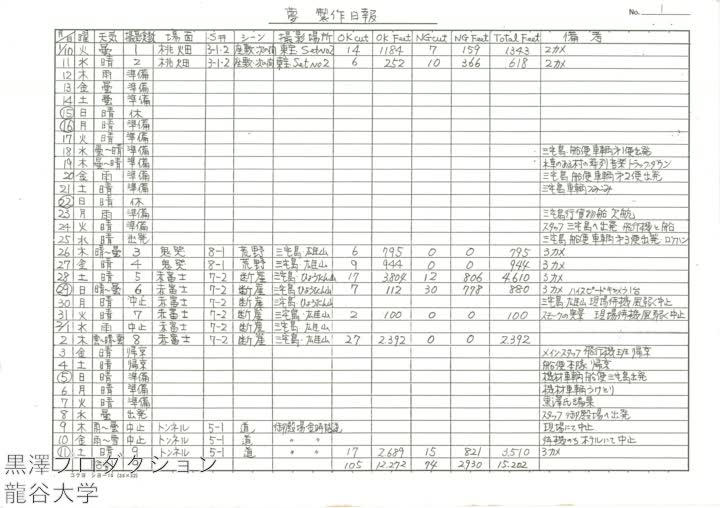 夢 製作日報
No. 1
月/日 曜 天気 撮影実数 場面 S# シーン 撮影場所 OK cut OK Feet NG cut NG Feet Total Feet 備考
1/10 火 曇 1 桃畑 3-1-2 東宝 Set No2 14 1184 7 159 1343 2カメ
11 水 晴 2 桃畑 3-1-2 東宝 Set No2 6 252 10 366 618 2カメ
12 木 雨 準備
13 金 曇 準備
14 土 曇 準備
15 日 晴 休
16 月 晴 準備
17 火 晴 準備
18 水 曇〜晴 準備 三宅島 船便車輌 才1便出発
19 木 曇〜晴 準備
20 金 雨 準備 三宅島 船便車輌 才2便出発
21 土 晴 準備 三宅島車輌つみこみ
22 日 晴 休
23 月 雨 準備 三宅島行貨物船 欠航
24 火 晴 準備 スタッフ 三宅島へ出発 飛行機と船
25 水 晴 出発 三宅島 船便車輌 才3便出発 ロケハン
26 木 晴〜曇 3 鬼哭 8-1 荒野 三宅島 雄山 6 795 0 0 795 3カメ
27 金 晴 4 鬼哭 8-1 荒野 三宅島 雄山 9 944 0 0 944 3カメ
28 土 晴 5 赤富士 7-2 断崖 三宅島 ひょうたん山 17 3.804 12 806 4.610 3カメ
29 日 晴〜曇 6 赤富士 7-2 断崖 三宅島 ひょうたん山 7 112 30 778 880 3カメ ハイスピードキャメラ1台
30 月 晴 中止 赤富士 7-2 断崖 三宅島 ひょうたん山 三宅島 雄山 現場待機 風弱く中止
31 火 晴 7 赤富士 7-2 断崖 三宅島 雄山 2 100 0 0 100 スモークの実景 現場待機 風弱く中止
2/1 水 雨 中止 赤富士 7-2 断崖 三宅島 雄山
2 木 8 赤富士 7-2 断崖 三宅島 雄山 27 2.392 0 0 2.392
3 金 晴 帰京 メインスタッフ 飛行機班 帰京
4 土 晴 帰京 船便本隊 帰京
5 日 晴 準備 機材車輌 船便 三宅島出発
6 月 晴 準備 機材車輌うけとり
7 火 晴 準備 黒澤氏
8 水 曇 出発 スタッフ 御殿場へ出発
9 木 雨〜曇 中止 トンネル 5-1 道 御殿場 現場にて中止
10 金 雨〜曇 中止 トンネル 5-1 道 〃 〃 待機のちホテルにて中止
11 土 晴 9 トンネル 5-1 道 〃 〃 17 2.689 15 821 3.510 3カメ
105 12.272 74 2930 15.202
黒澤プロダクション
龍谷大学